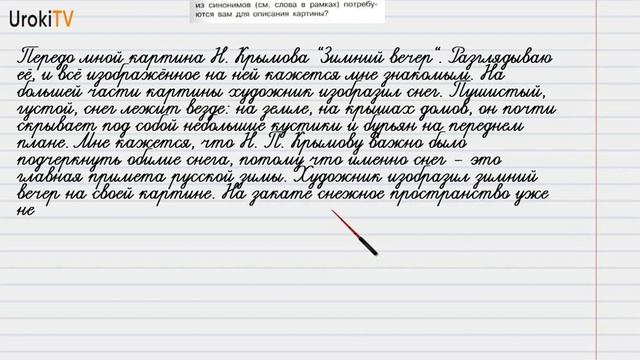 UrokiTV
из синонимов (см. слова в рамках) потребу-
ются вам для описания картины?
Передо мной картина Н. Крымова "Зимний вечер". Разглядываю
её, и всё изображённое на ней кажется мне знакомым. На
большей части картины художник изобразил снег. Пушистый,
густой, снег лежит везде: на земле, на крышах домов, он почти
скрывает под собой небольшие кустики и бурьян на переднем
плане. Мне кажется, что Н. П. Крымову важно было
подчеркнуть обилие снега, потому что именно снег – это
главная примета русской зимы. Художник изобразил зимний
вечер на своей картине. На закате снежное пространство уже
не